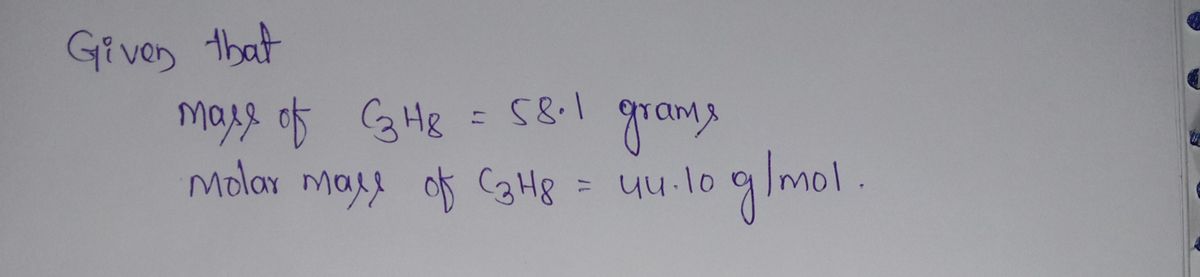 Given that
mass of C3H8 = 58.1 grams
Molar mass of C3H8 = 44.10 g/mol.